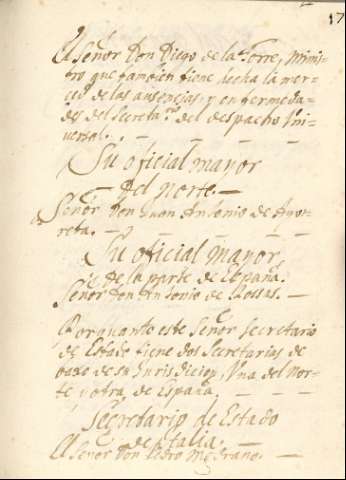 17
El Señor Don Diego de la Torre, Minis=
tro que tambien tiene hecha la mer=
ced de las ausencias, y enfermeda=
des del Secret.rio del despacho Vni=
versal. —
Su oficial mayor
del norte. —
Señor Don Juan Antonio de
reta. —
Su oficial mayor,
de la parte de España.
Señor Don Antonio de Rossas. —
Porquanto este Señor secretario
de Estado tiene dos Secretarias de
baxo de su Jurisdicion, Vna del Nor=
te y otra de España. —
Secretario de Estado
de Italia. —
El Señor Don Pedro Medrano. —